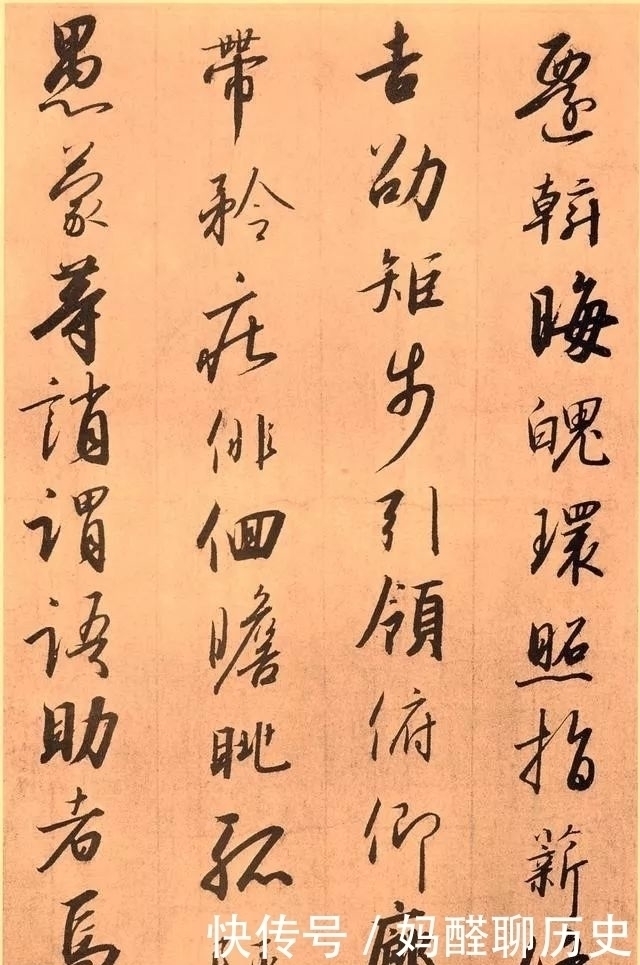 遷斡晦魄環照指薪
吉劭矩步引領俯仰廊
帶矜庄俳佪瞻眺孤
愚蒙等誚謂語助者焉
快传号 / 妈醛聊历史